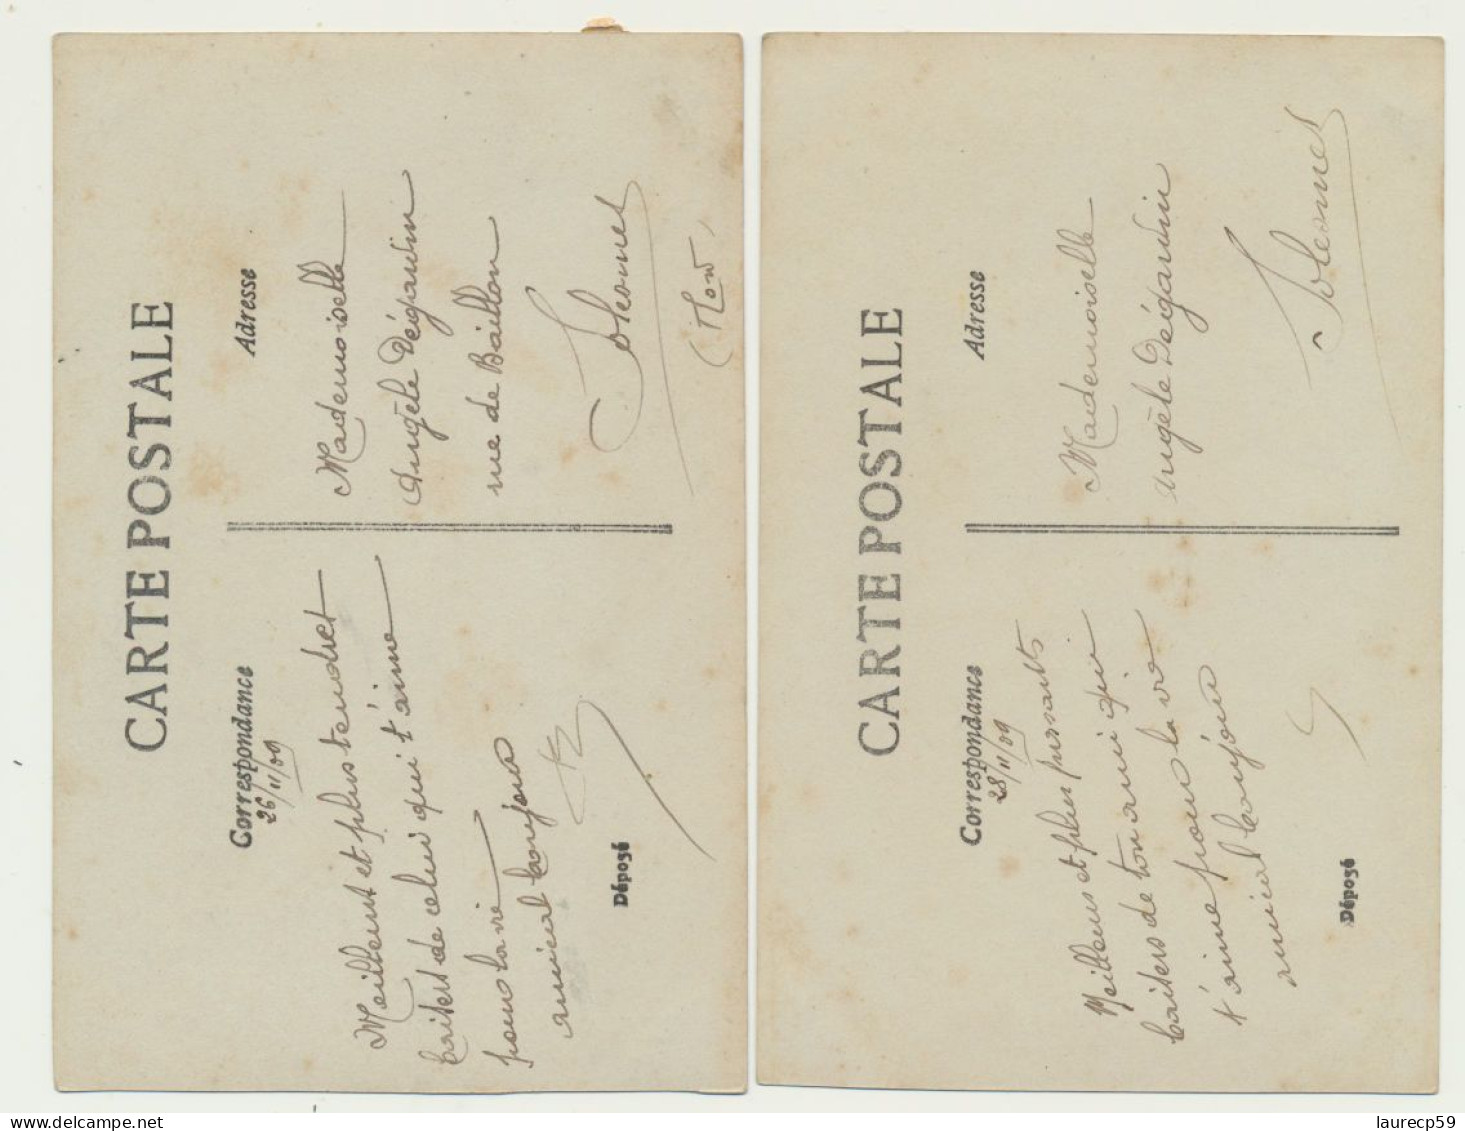 CARTE POSTALE
Correspondance
26/11/09
Meilleurs et plus tendres
baisers de celui qui t'aime
pour la vie
amical bonjour
Déposé
Adresse
Mademoiselle
Angèle Dégardin
rue de Baillon
Solesmes
(Nord)
CARTE POSTALE
Correspondance
28/11/09
Meilleurs et plus puissants
baisers de ton ami qui
t'aime pour la vie
amical bonjour
Déposé
Adresse
Mademoiselle
Angèle Dégardin
Solesmes
laurecp59